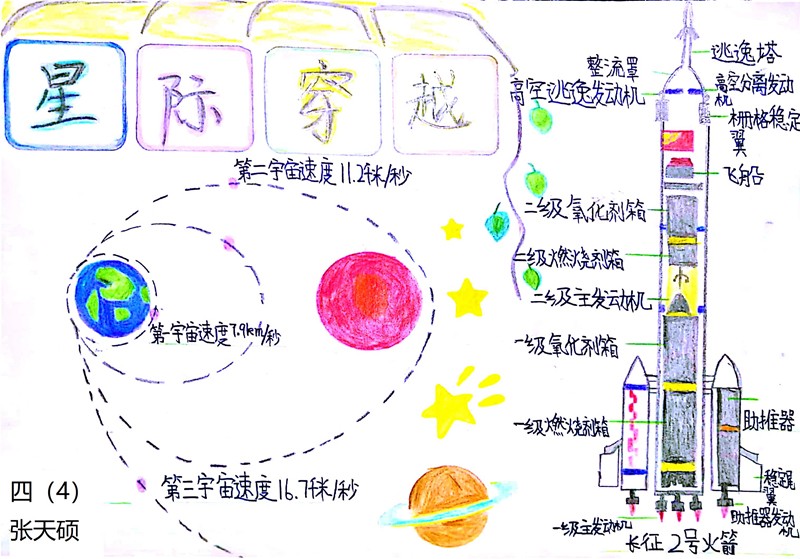 星际穿越
第二宇宙速度11.2千米/秒
第一宇宙速度7.9km/秒
第三宇宙速度16.7千米/秒
四（4）
张天硕
逃逸塔
整流罩
高空分离发动
机
高空逃逸发动机
栅格稳定
翼
飞船
二级氧化剂箱
二级燃烧剂箱
二级主发动机
一级氧化剂箱
一级燃烧剂箱
助推器
稳定
翼
一级主发动机
助推器发动
机
长征2号火箭